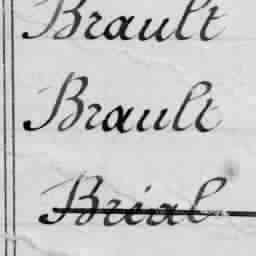 Brault
Brault
Brial